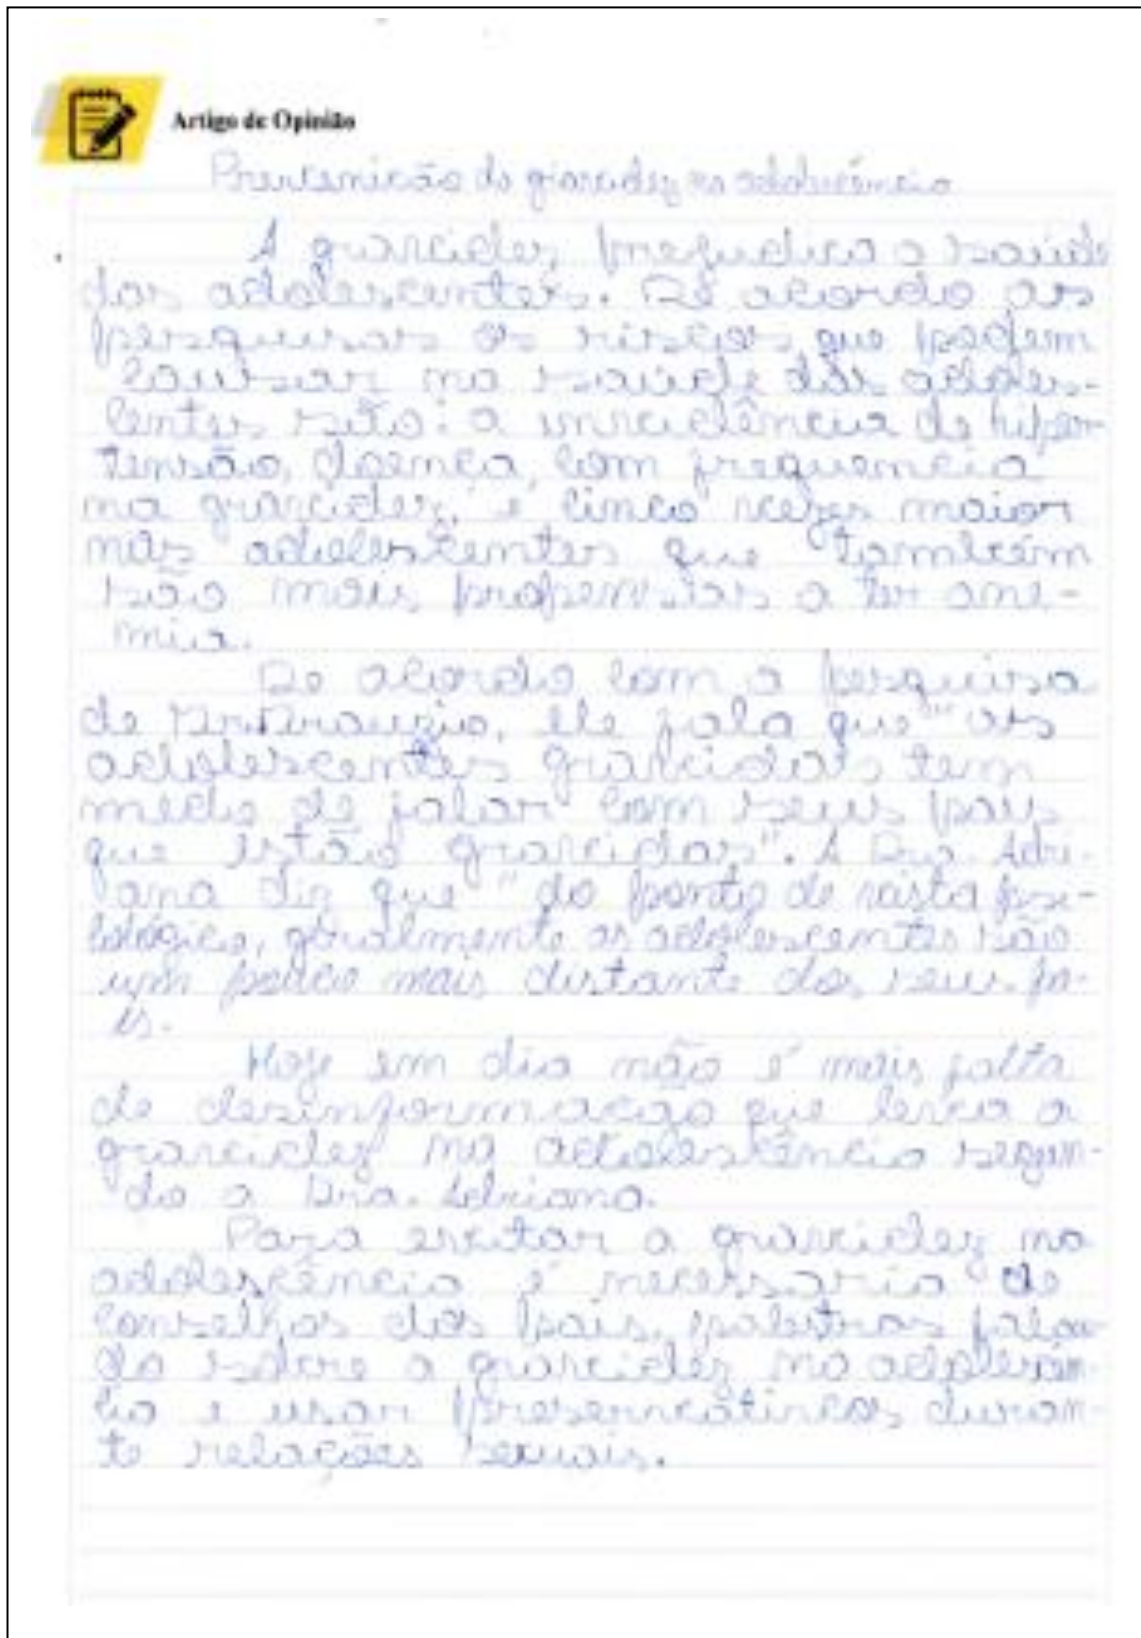 Artigo de Opinião
da gravidez na adolecência
A gravidez prejudica a saúde
dos adolescentes. De acordo as
pesquisas os riscos que podem
causar na saúde dos adoles-
centes são: a incidência de hiper
tensão, doença, com frequencia
na gravidez, é cinco vezes maior
nas adolescentes que também
são mais propensas a ter ane-
mia.
De acordo com a pesquisa
de ele fala que "as
adolescentes gravidas tem
medo de falar com seus pais
que estão gravidas". A Dra. Adri-
ana diz que "do ponto de vista psi-
cológico, geralmente os adolescentes são
um pouco mais distante dos seus pa-
is.
Hoje em dia não é mais falta
de desinformação que leva a
gravidez na adolescência segun-
do a Dra. Adriana.
Para evitar a gravidez na
adolescência é necessario de
conselhos dos pais, palestras falan
do sobre a gravidez na
e usar duran-
te relações sexuais.